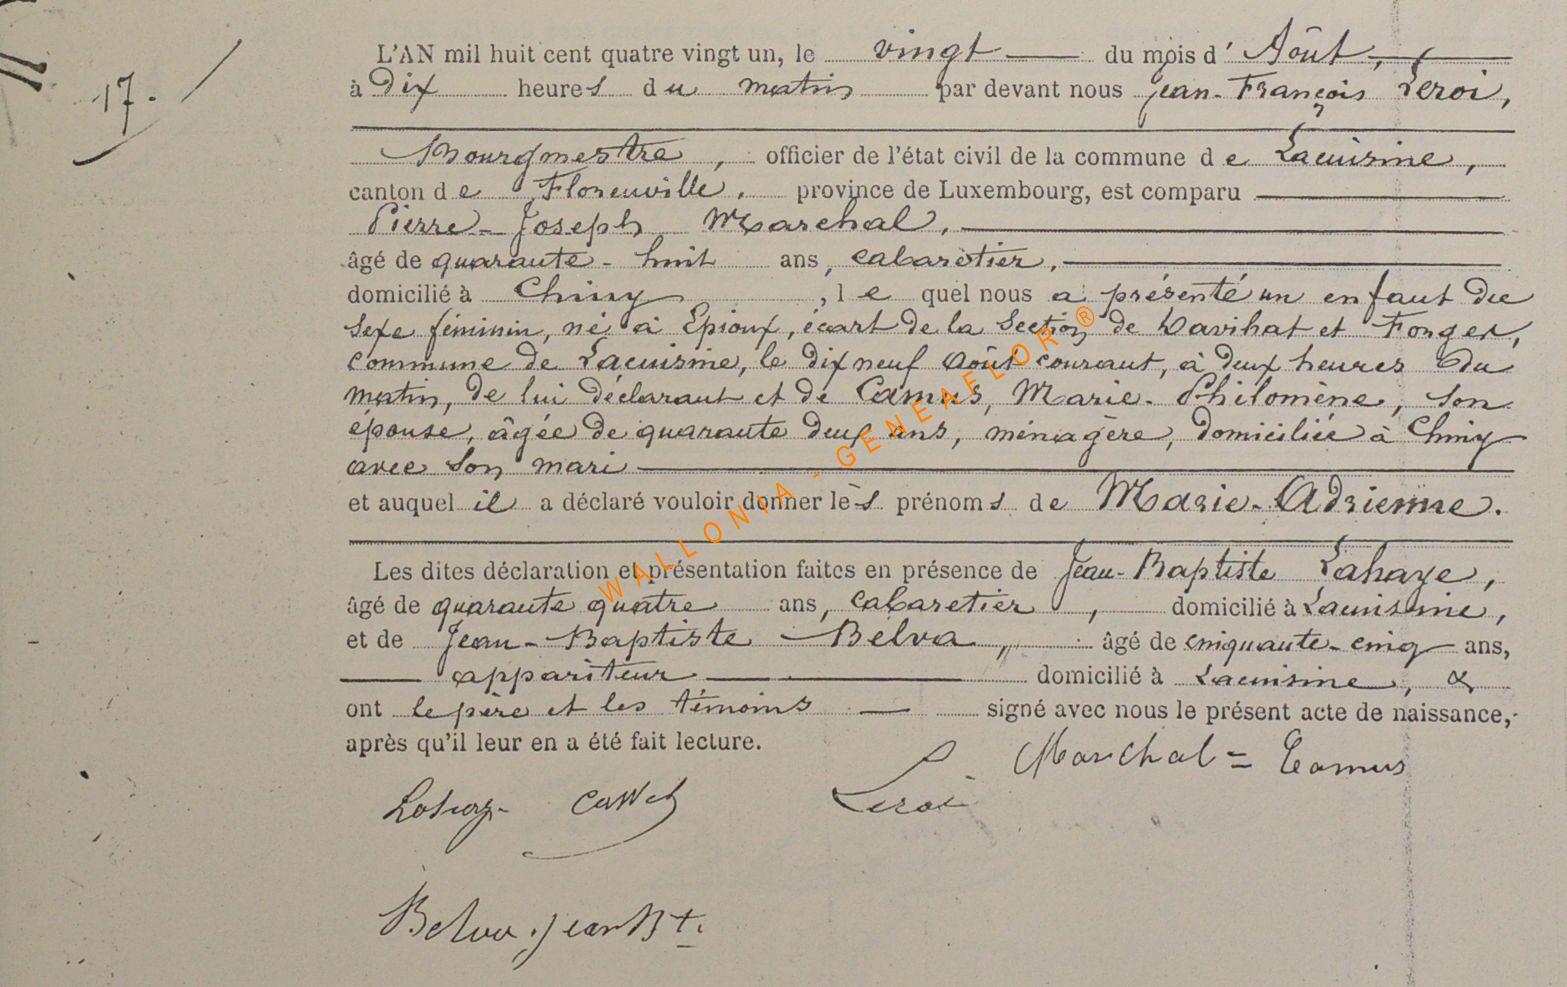 17.
L'AN mil huit cent quatre vingt un, le vingt du mois d' Août,
à Dix heures du matin par devant nous Jean-François Leroi,
Bourgmestre, officier de l'état civil de la commune de Lacuisine,
canton de Florenville, province de Luxembourg, est comparu
Pierre-Joseph Marchal,
âgé de quarante-huit ans, cabaretier,
domicilié à Chiny, lequel nous a présenté un enfant du
sexe féminin, né à Epioux, écart de la section de Wavihat et Forges,
commune de Lacuisine, le dix neuf Août courant, à deux heures du
matin, de lui déclarant et de Camus, Marie-Philomène, son
épouse, âgée de quarante deux ans, ménagère, domiciliée à Chiny
avec son mari
et auquel il a déclaré vouloir donner les prénoms de Marie-Adrienne.
Les dites déclaration et présentation faites en présence de Jean-Baptiste Lahaye,
âgé de quarante quatre ans, cabaretier, domicilié à Lacuisine,
et de Jean-Baptiste Belva, âgé de cinquante-cinq ans,
appariteur domicilié à Lacuisine, &
ont le père et les témoins signé avec nous le présent acte de naissance,
après qu'il leur en a été fait lecture.
Marchal = Camus
Leroi
Belva Jean Bt.
WALLONIA - GENEAFLOR®